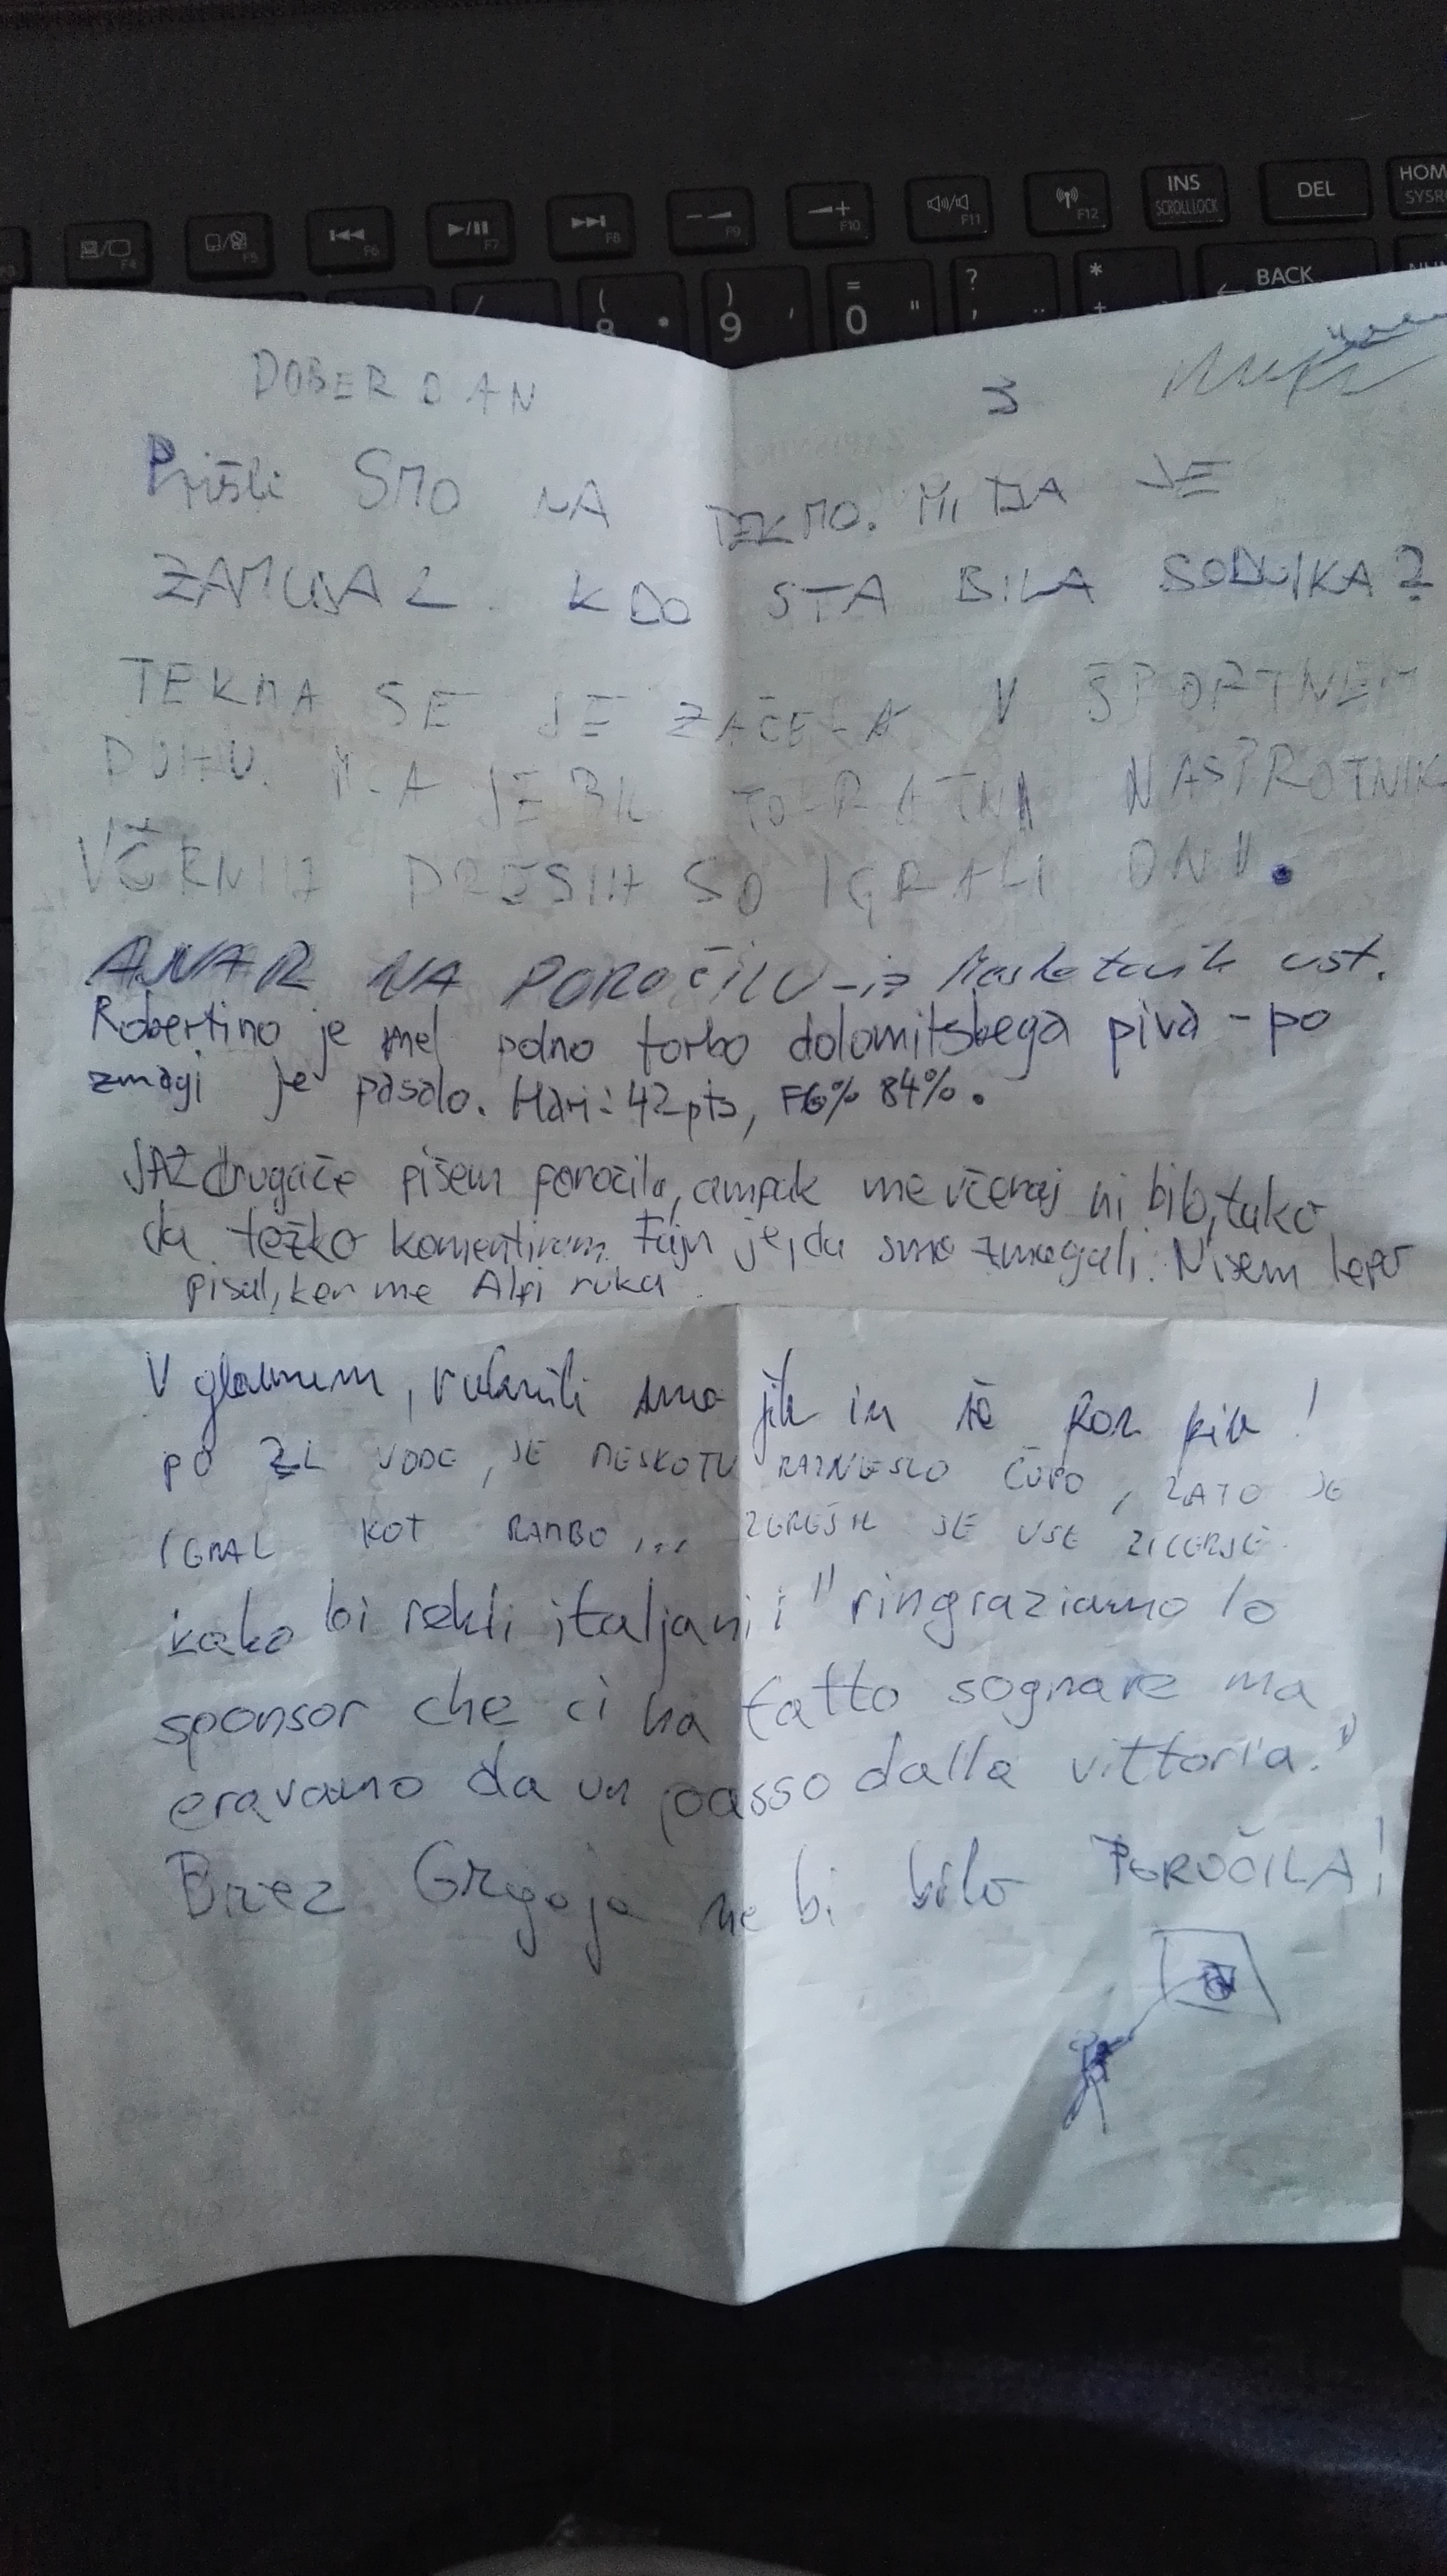 INS
SCROLLLOCK
DEL
HOM
SYSR
F4 F5 F6 F7 F8 F9 F10 F11 F12
BACK
( ) = ? *
8 9 ' 0 " ' +
DOBER DAN
3
Prišli SMO NA TEKMO. MITJA JE
ZAMUJAL. KDO STA BILA SODNIKA?
TEKMA SE JE ZAČELA V ŠPORTNEM
DUHU. JE BIL NASPROTNIK
V ČRNIH DRESIH SO IGRALI ONI.
NA POROČILU - iz ust.
Robertino je mel polno torbo dolomitskega piva - po
zmagi je pasalo. Hari: 42 pts, FG% 84%.
JAZ drugače pišem poročila, ampak me včeraj ni bilo, tako
da težko komentiram. Fajn je, da smo zmagali. Nisem lepo
pisal, ker me Alfi ruka.
V glavnem, smo jih in še !
PO 2L VODE, JE MESKOTU RAZNESLO ČUPO, ZATO JE
IGRAL KOT RAMBO... ZGREŠIL JE VSE ZICERJE
kako bi rekli italjani: "ringraziamo lo
sponsor che ci ha fatto sognare ma
eravamo da un passo dalla vittoria."
Brez ne bi bilo POROČILA!